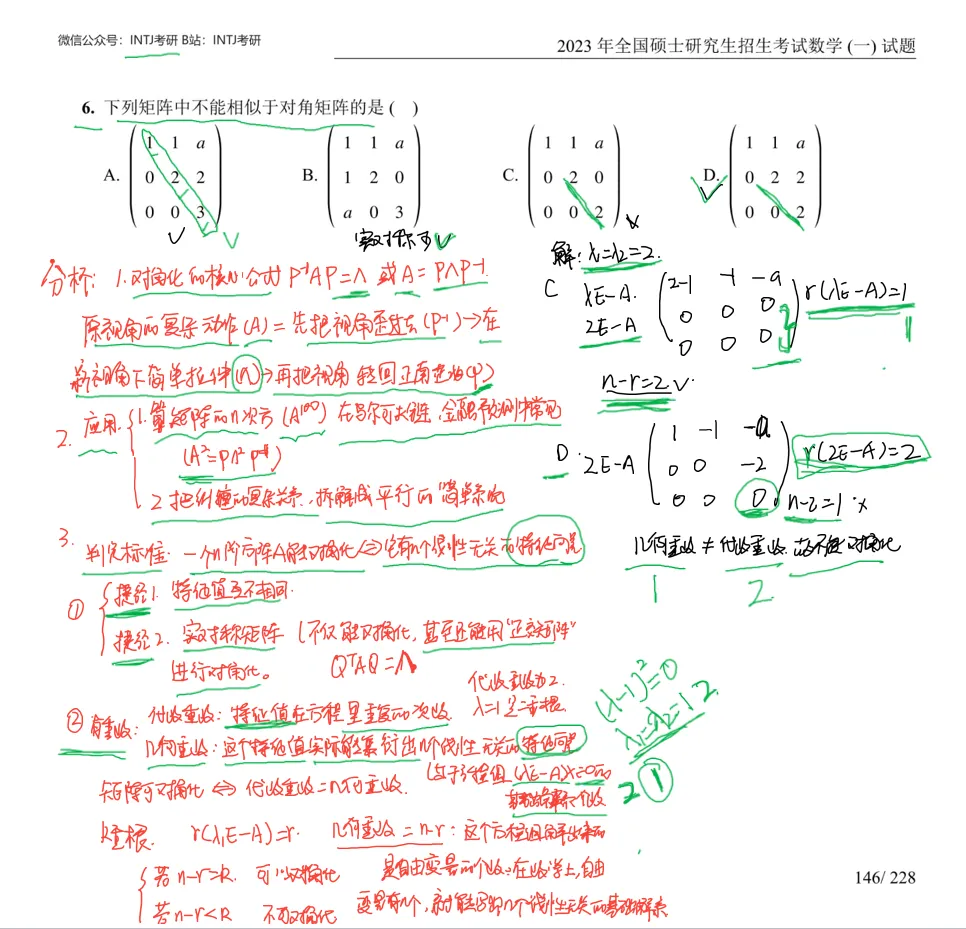 微信公众号：INTJ考研 B站：INTJ考研
2023 年全国硕士研究生招生考试数学 (一) 试题
6. 下列矩阵中不能相似于对角矩阵的是 (　)
A. 1 1 a
0 2 2
0 0 3
B. 1 1 a
1 2 0
a 0 3
C. 1 1 a
0 2 0
0 0 2
D. 1 1 a
0 2 2
0 0 2
实对称可
解: λ1=λ2=2.
C λE-A.
2E-A
2-1 -1 -a
0 0 0
0 0 0
r(λE-A)=1
1
n-r=2
D. 2E-A
1 -1 -a
0 0 -2
0 0 0
r(2E-A)=2
n-2=1 ×
几何重数 ≠ 代数重数. 故不能对角化
1 2
分析: 1. 对角化的核心公式 P⁻¹AP=Λ 或 A=PΛP⁻¹
原视角的复杂动作(A)=先把视角歪过去(P⁻¹)→在
新视角下简单拉伸(Λ)→再把视角转回正南
2. 应用 1. 算矩阵的n次方 (A¹⁰⁰) 在马尔可夫链 金融预测中常见
2 把纠缠的复杂关系, 拆解成平行的简单系
3. 判定标准: 一个n阶方阵A能对角化⇔它有n个线性无关的特征向量
① 捷径1. 特征值互不相同.
捷径2. 实对称矩阵 (不仅能对角化, 甚至还能用"正交矩阵"
进行对角化。 QᵀAQ=Λ
代数重数为2.
λ=1是二重根.
(λ-1)²=0
λ1=λ2=1 2
② 代数重数: 特征值在方程里重复的次数
几何重数: 这个特征值实际能衍生出几个线性无关的特征向量
(λE-A)x=0
2 1
矩阵可对角化 ⇔ 代数重数=几何重数.
k重根. r(λ1E-A)=r. 几何重数=n-r: 这个方程组解出来的
若 n-r=k. 可以对角化 是自由变量的个数: 在数学上, 自由
若 n-r<k 不可对角化 变量有几个, 就能得到几个线性无关的基础解系
146/ 228